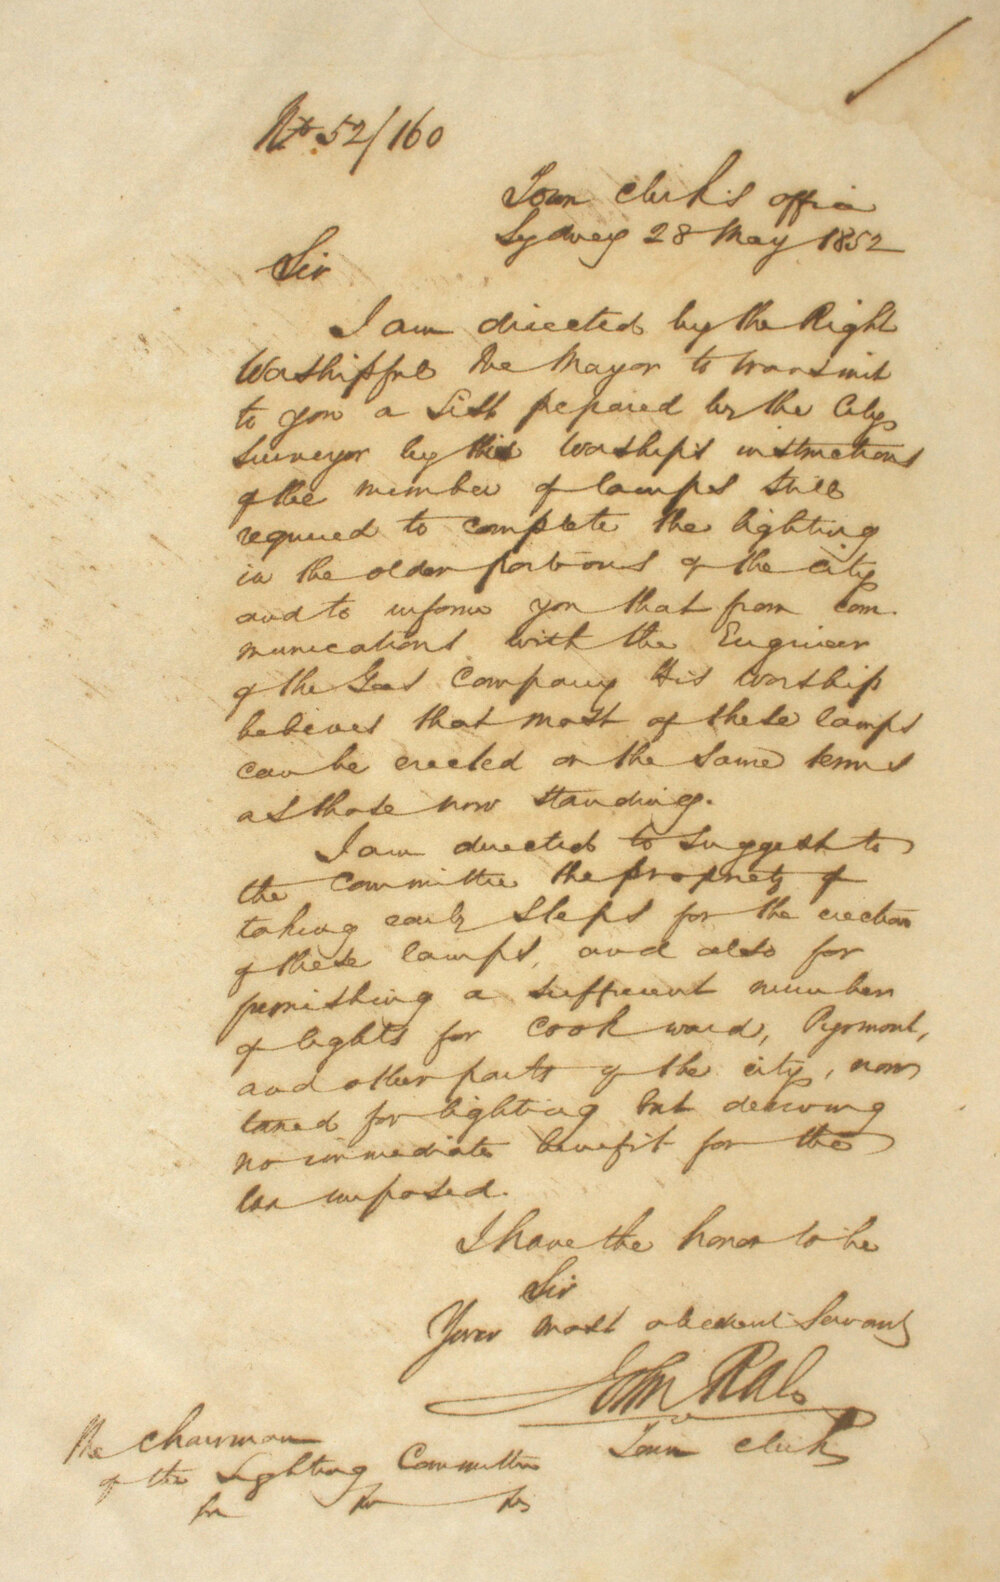 No 52/160
Town Clerk's Office
Sydney 28 May 1852
Sir
I am directed by the Right
Worshipful the Mayor to transmit
to you a List prepared by the City
Surveyor by His Worship's instructions
of the number of lamps still
required to complete the lighting
in the older portions of the city
and to inform you that from com-
munications with the Engineer
of the Gas Company His Worship
believes that most of these lamps
can be erected on the same terms
as those now standing.
I am directed to suggest to
the Committee the propriety of
taking early steps for the erection
of these lamps, and also for
furnishing a sufficient number
of lights for Cook ward, Pyrmont,
and other parts of the city, now
taxed for lighting but deriving
no immediate benefit for the
tax imposed.
I have the honor to be
Sir
Your most obedient Servant
John
Town Clerk
The Chairman
of the Lighting Committee